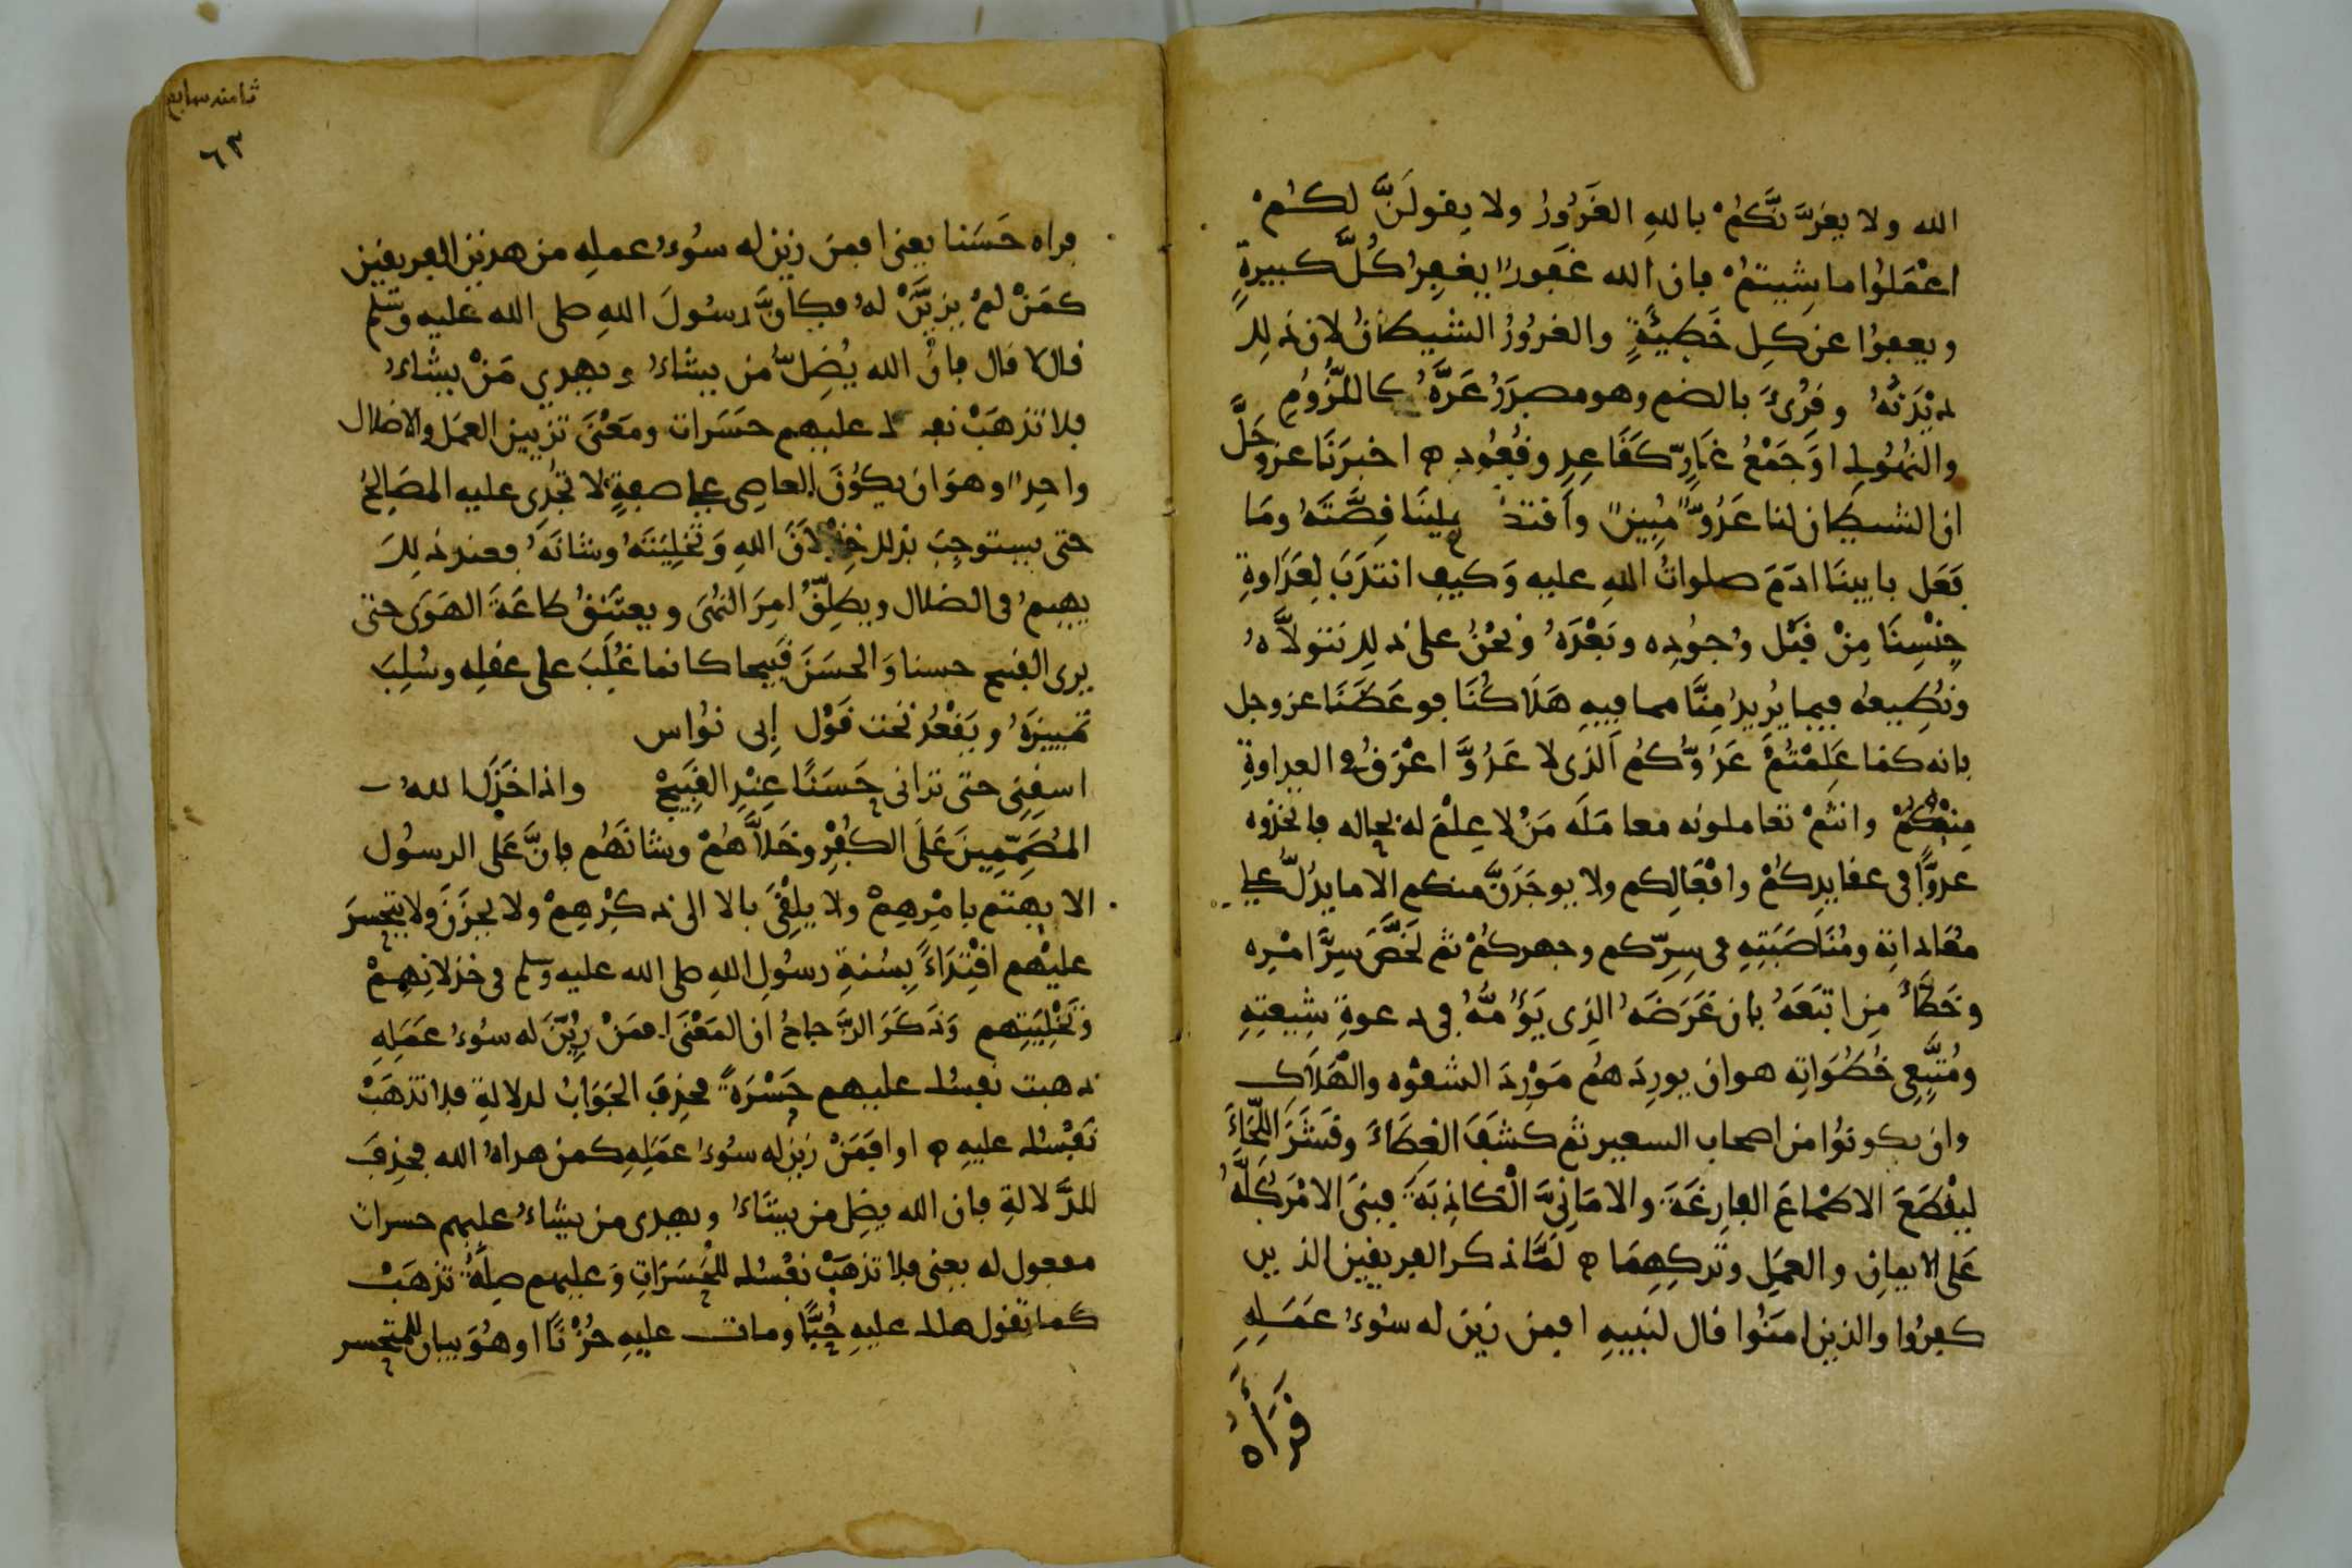 الله ولا يغرَّنَّكُمْ بالله الغَرُورُ ولا يقولَنَّ لكُمْ
اعْمَلوُا ما شيتمُ فان الله غَفورًا يغفِرُ كُلَّ كبيرةٍ
ويعفوُا عن كلِ خَطِيئَةٍ والغرُورُ الشيطانُ لان ذلك
دَيْدَنُهُ وقُرِئَ بالضم وهو مصدَرُ غَرَّهُ كاللّزُومِ
والنهُوكِ اوَ جَمْعُ غَارّ كقَاعِدٍ وقُعُودٍ ه اخبرَنَا عز وجَلَّ
ان الشيطان لنا عَدُوًّ مُبِينً واَقتد علينَا قِصَّتَهُ ومَا
فَعَل بابينَا ادَمَ صلواتُ اللهِ عليه وَكيفِ انتدَبَ لِعَدَاوةِ
جِنْسِنَا مِنْ قَبْل وُجوُدِه وبَعْدَهُ ونَحْنُ على ذلك نتولاَّهُ
ونُطِيعهُ فيما يُرِيدُ مِنَّا مما فيِهِ هَلَاكُنَا فوعَظَنَا عز وجل
بانه كما عَلِمْتُمْ عَدُوُّكُم الذى لا عَدُوَّ اعْرَقُ فى العداوةِ
مِنهُ وانتُمْ تعاملونه معامَلَه مَنْ لا عِلْمَ لهُ بحاله فاتخذوه
عدوًّا فى عقايدِكمُ وافْعَالِكم ولا يوجَدَنَّ منكم الا ما يدُلُّ على
مُعَاداتِه ومُنَاصَبَتِهِ فى سِرّكم وجهركمُ ثم لَخَّصَ سِرَّ امْرِه
وخَطَّأَ مِن اتبَعَهُ بان غَرَضَهُ الذِى يَؤُمُّهُ فى دعوةِ شِيعتِهِ
ومُتَّبِعِى خُطُوَاتِه هو ان يورِدَهُم مَوْرِدَ الشقوْه والهَلاَكِ
وان يكونوُا من اصحاب السعير ثم كشَفَ الغِطَاءَ وقشَرَ اللِّحَاءَ
ليقْطَعَ الاطْماعَ الفارِغَةَ والامَانِيَّ الْكَاذِبَةَ فبنَى الامْرَ كلَّهُ
عَلى الايمانِ والعمَلِ وتَركِهِمَا ه لَمَّا ذكر الفريقين الذين
كفرُوا والذين امنُوا قال لنبيهِ افمن زين له سوُءُ عمَلِهِ
فَرَأَىهُ
ثامنه سابع
٦٣
فراه حَسَنا يعنى افمن زين له سوُءُ عملِه من هذين الفريقين
كمَنْ لمْ يزيَّنْ لهُ فكانَّ رسُولَ اللهِ صلى الله عليه وسلم
قال لا فقال فانْ الله يُضِلُّ من يشاءُ ويهدِي مَنْ يشاءُ
فلا تذهَبْ نفسك عليهم حسَرات ومَعْنَى تزيين العمَل والاضلال
واحِدً وهوَ ان يكوُنَ العاصِى على صفةٍ لا تُجْدِى عليه المصَالِحُ
حتى يستوجِبَ بذلك خِذْلاَنَ اللهِ وَتَخلِيَتَهُ وشانَهُ فعند ذلكَ
يهِيمُ فى الضلال ويطلِقُ امِرَ النُهَى ويعتنِقُ طاعَةَ الهَوَى حتى
يرى القبيح حسنا وَالحسَنَ قبيحا كانما غُلِبَ على عقلِه وسُلِبَ
تمييزَهُ ويَقْعُدُ تحت قَوْلِ ابى نُواس
اسقِنِى حتى ترانى حَسَنًا عِنْدِ القَبِيْحْ واذا خَذَل اللهُ
المُصَمِّمِينَ عَلَى الكُفْرِ وخَلاَّهُمْ وشانَهُم فانَّ عَلى الرسُول
الا يهتم بامْرِهِمْ ولا يلِقْىَ بالا الى ذكِرْهِمْ ولا يحزَنَ ولا يتحسرَ
عليْهم اقْتِدَاءً بِسُنةِ رسُولِ اللهِ صلى الله عليه وسلم فى خذلانِهِمْ
وتَخْلِيَتِهم وَذكَرَ الزَّجاجُ ان المَعْنَى افمَنْ زُيِّنَ له سوُءُ عمَلِهِ
ذهبت نفسُك عليهم حَسْرَةً فحُذِفَ الجَوَابُ لدلالةِ فلا تذهَبْ
نفْسُك عليهِ ه او افَمَنْ زين له سوُءُ عمَلِهِ كمن هداهُ الله فحُذِفَ
للدَّلالةِ فان الله يضِل من يشَاءُ ويهدى من يشاءُ عليهم حسرات
مفعول له يعنى فلا تذهَبْ نفْسُك للْحَسَرَاتِ وَعليهم صِلَةُ تذهَبْ
كما تقول هلك عليهِ حُبًّا ومات عليهِ حُزْنًا اوهُوَ بيان للمتحسر